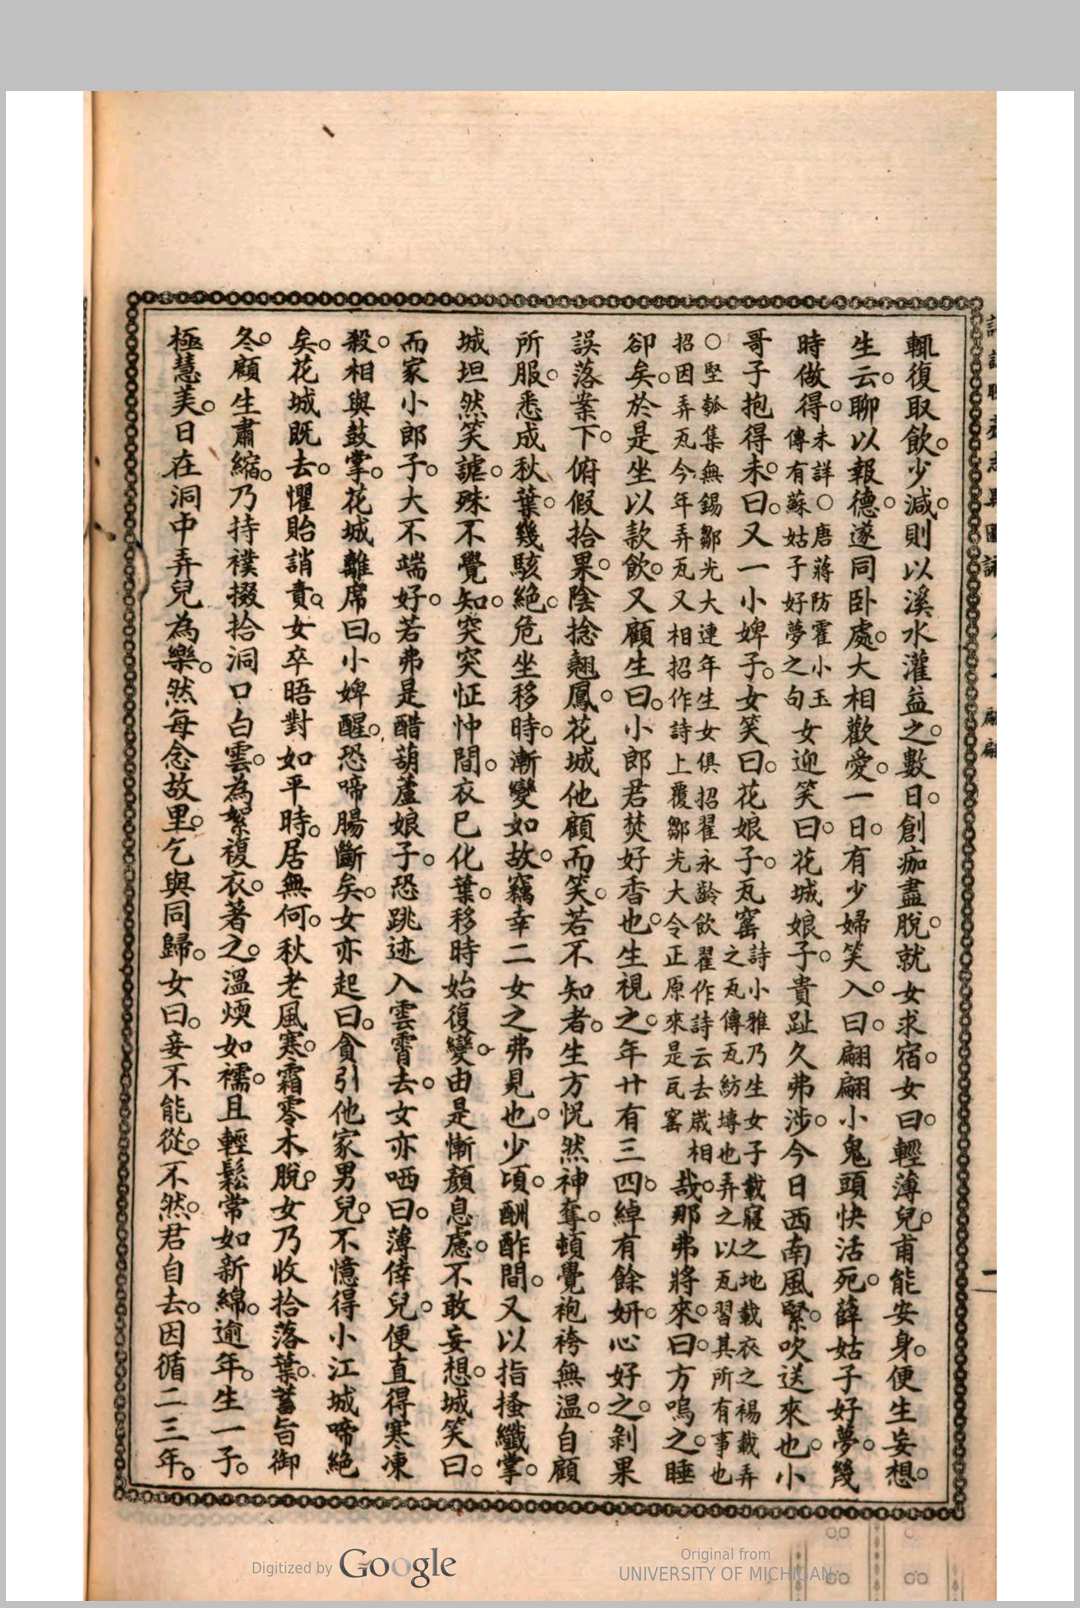 輒復取飲少減則以溪水灌益之數日創痂盡脫就女求宿女曰輕薄兒甫能安身便生妄想
生云聊以報德遂同卧處大相歡愛一日有少婦笑入曰翩翩小鬼頭快活死薛姑子好夢幾
時做得未詳○唐蔣防霍小玉傳有蘇姑子好夢之句女迎笑曰花城娘子貴趾久弗涉今日西南風緊吹送來也小
哥子抱得未曰又一小婢子女笑曰花娘子瓦窰詩小雅乃生女子載寢之地載衣之裼載弄之瓦傳瓦紡塼也弄之以瓦習其所有事也
○堅瓠集無錫鄒光大連年生女俱招翟永齡飲翟作詩云去嵗相招因弄瓦今年弄瓦又相招作詩上覆鄒光大令正原來是瓦窰哉那弗將來曰方嗚之睡
卻矣於是坐以款飲又顧生曰小郎君焚好香也生視之年廿有三四綽有餘妍心好之剝果
誤落案下俯假拾果陰捻翹鳳花城他顧而笑若不知者生方怳然神奪頓覺袍袴無温自顧
所服悉成秋葉幾駭絕危坐移時漸變如故竊幸二女之弗見也少頃酬酢間又以指搔纖掌
城坦然笑謔殊不覺知突突怔忡間衣已化葉移時始復變由是慚顏息慮不敢妄想城笑曰
而家小郎子大不端好若弗是醋葫蘆娘子恐跳迹入雲霄去女亦哂曰薄倖兒便直得寒凍
殺相與鼓掌花城離席曰小婢醒恐啼腸斷矣女亦起曰貪引他家男兒不憶得小江城啼絕
矣花城既去懼貽誚責女卒晤對如平時居無何秋老風寒霜零木脫女乃收拾落葉蓄旨御
冬顧生肅縮乃持襆掇拾洞口白雲為絮複衣著之溫煗如襦且輕鬆常如新綿逾年生一子
極慧美日在洞中弄兒為樂然每念故里乞與同歸女曰妾不能從不然君自去因循二三年
Digitized by Google
Original from
UNIVERSITY OF MICHIGAN